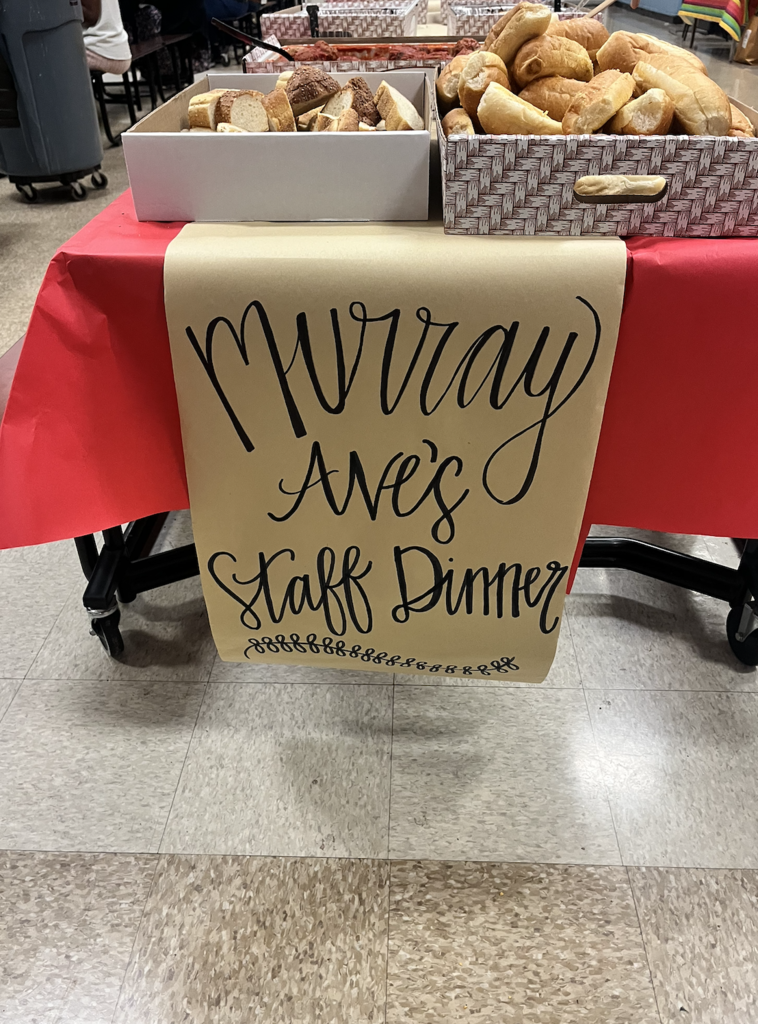 Murray
Ave's
Staff Dinner